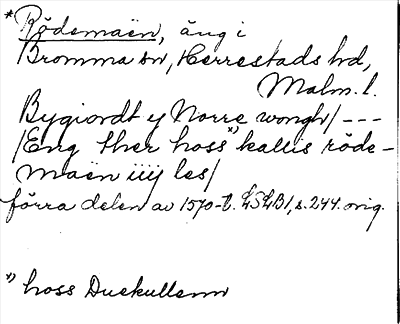 * Rödemaën, äng i
Bromma sn, Herrestads hd,
Malm. l.
Bygiordt y Norre wongh/ ---
/Eng ther hoss *) kallis röde-
maën iiij les/
förra delen av 1570-t. LSLB1, s. 244. orig.
*) hoss Duekullenn